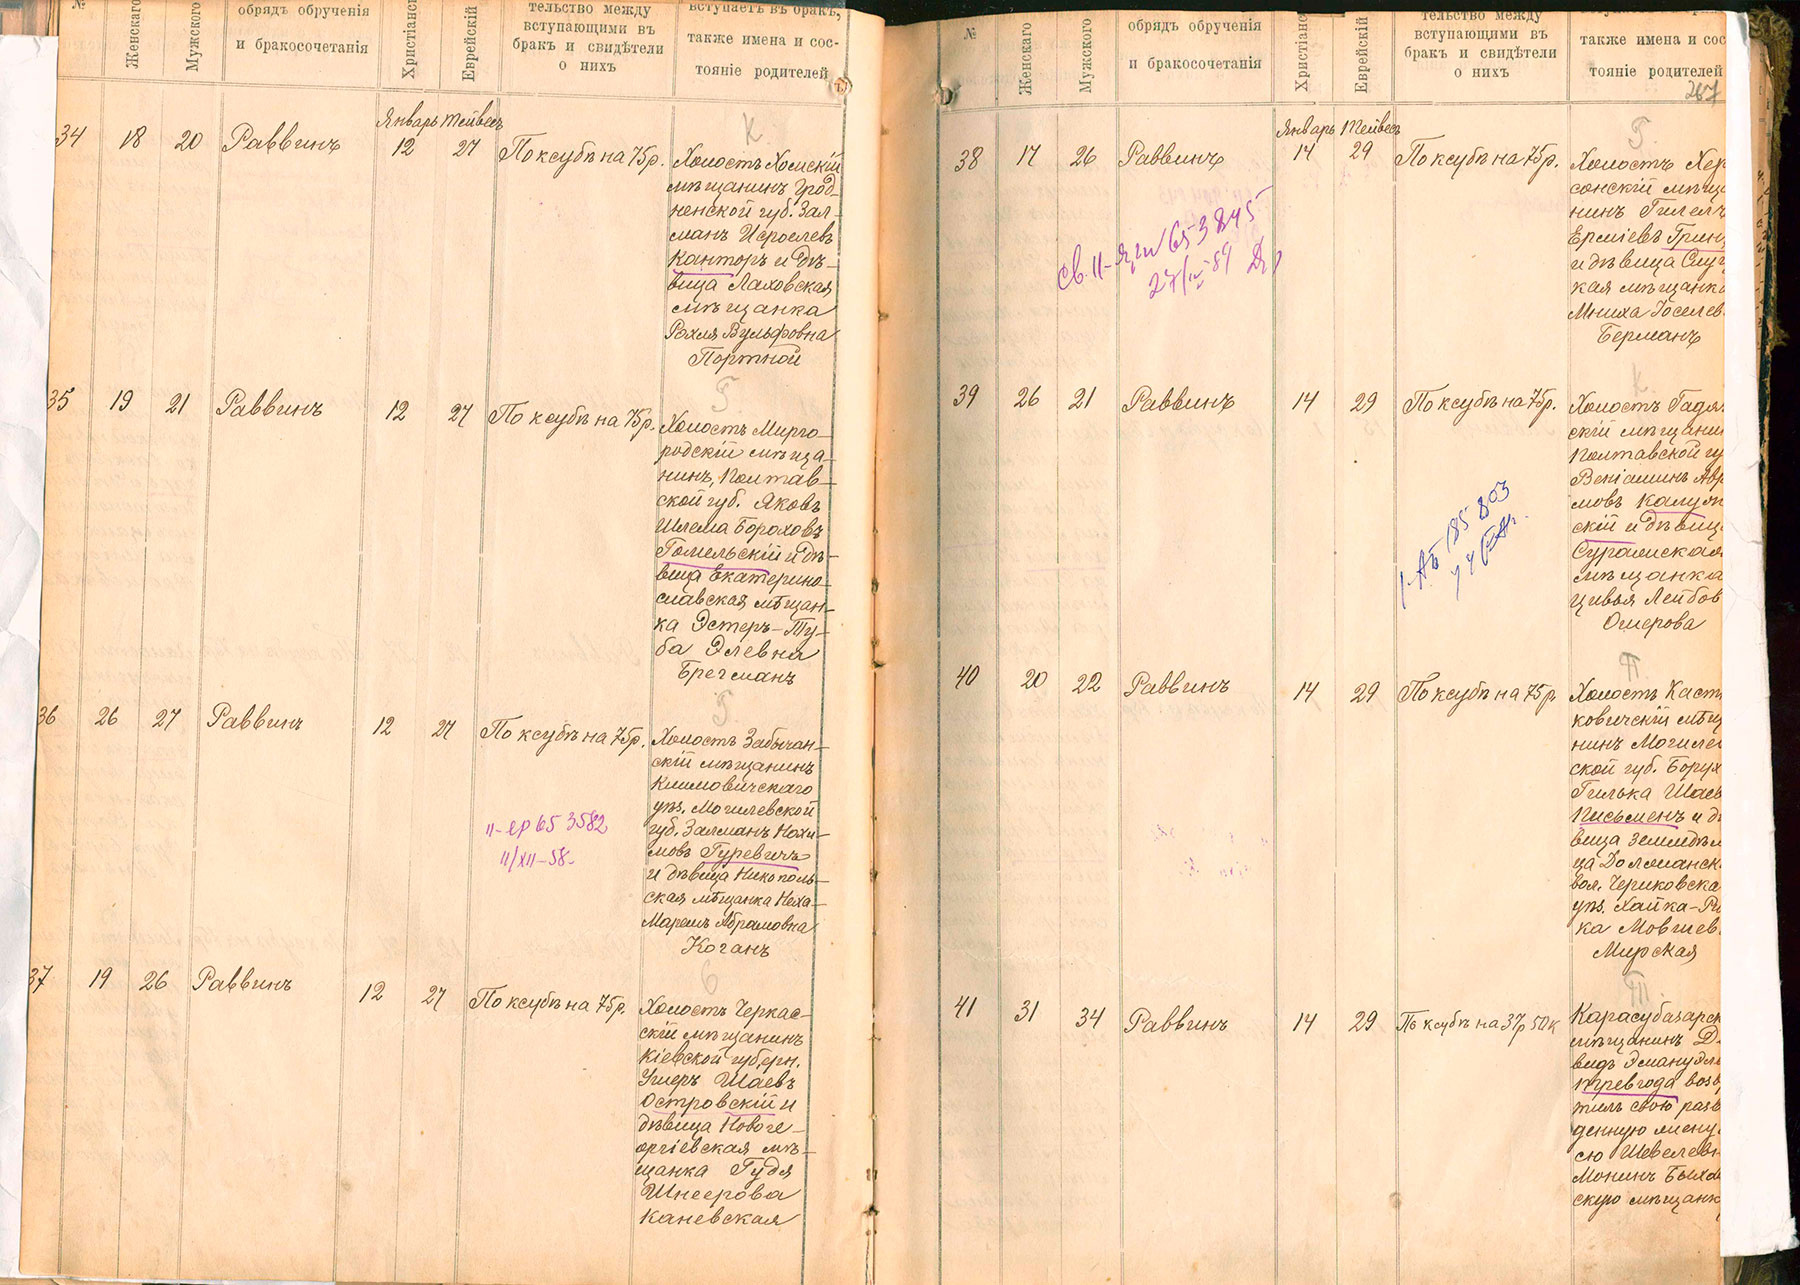 №
Женскаго
Мужского
обрядъ обрученія
и бракосочетанія
Христіанс
Еврейскій
тельство между
вступающими въ
бракъ и свидѣтели
о нихъ
вступаетъ въ бракъ,
также имена и сос-
тояніе родителей
Январь Тейвесъ
К
34 18 20 Раввинъ 12 27 По ксубѣ на 75 р.
Холостъ Хомскій
мѣщанинъ Грод-
ненской губ. Зал-
манъ Исроелевъ
Канторъ и дѣ-
вица Ляховская
мѣщанка
Рохля Вульфовна
Портной
Г
35 19 21 Раввинъ 12 27 По ксубѣ на 75 р.
Холостъ Мирго-
родскій мѣща-
нинъ, Полтав-
ской губ. Яковъ
Шлема Бороховъ
Гомельскій и дѣ-
вица Екатерино-
славская мѣщан-
ка Эстеръ-Ту-
ба Элевна
Брегманъ
Г
36 26 27 Раввинъ 12 27 По ксубѣ на 75 р.
Холостъ Забычан-
скій мѣщанинъ
Климовичскаго
уѣз. Могилевской
губ. Залманъ Нохи-
мовъ Гуревичъ
и дѣвица Никополь-
ская мѣщанка Неха-
Маремъ Абрамовна
Коганъ
653582
11/XII-58
О
37 19 26 Раввинъ 12 27 По ксубѣ на 75 р.
Холостъ Черкас-
скій мѣщанинъ
Кіевской губерн.
Ушеръ Шаевъ
Островскій и
дѣвица Новоге-
оргіевская мѣ-
щанка Гудя
Шнеерова
Каневская
№
Женскаго
Мужского
обрядъ обрученія
и бракосочетанія
Христіанс
Еврейскій
тельство между
вступающими въ
бракъ и свидѣтели
о нихъ
также имена и сос
тояніе родителей
267
Январь Тейвесъ
Г.
38 17 26 Раввинъ 14 29 По ксубѣ на 75 р.
Холостъ Хер
сонскій мѣщ
нинъ Гилелъ
Ерміевъ Грин
и дѣвица Слуц
кая мѣщанка
Мниха Іоселев
Берманъ
653845
27/IV-59
К.
39 26 21 Раввинъ 14 29 По ксубѣ на 75 р.
Холостъ Гадяч
скій мѣщани
Полтавской гу
Веніаминъ Авр
мовъ Калуж
скій и дѣвиц
Суражская
мѣщанка
Цивья Лейбов
Ошерова
185803
П.
40 20 22 Раввинъ 14 29 По ксубѣ на 75 р.
Холостъ Каст
ковичскій мѣщ
нинъ Могилев
ской губ. Борух
Гилька Шаев
Письменъ и дѣ
вица земледѣл
ца Долманск
вол. Чериковска
уѣз. Хайка-Ри
ка Мовшев
Мирская
Т.
41 31 34 Раввинъ 14 29 По ксубѣ на 37 р 50 к
Карасубазарск
мѣщанинъ Д
видъ Эмануэл
Тревгода возв
тилъ свою разв
денную жену
сю Шевелев
Монинъ Быхов
скую мѣщанк